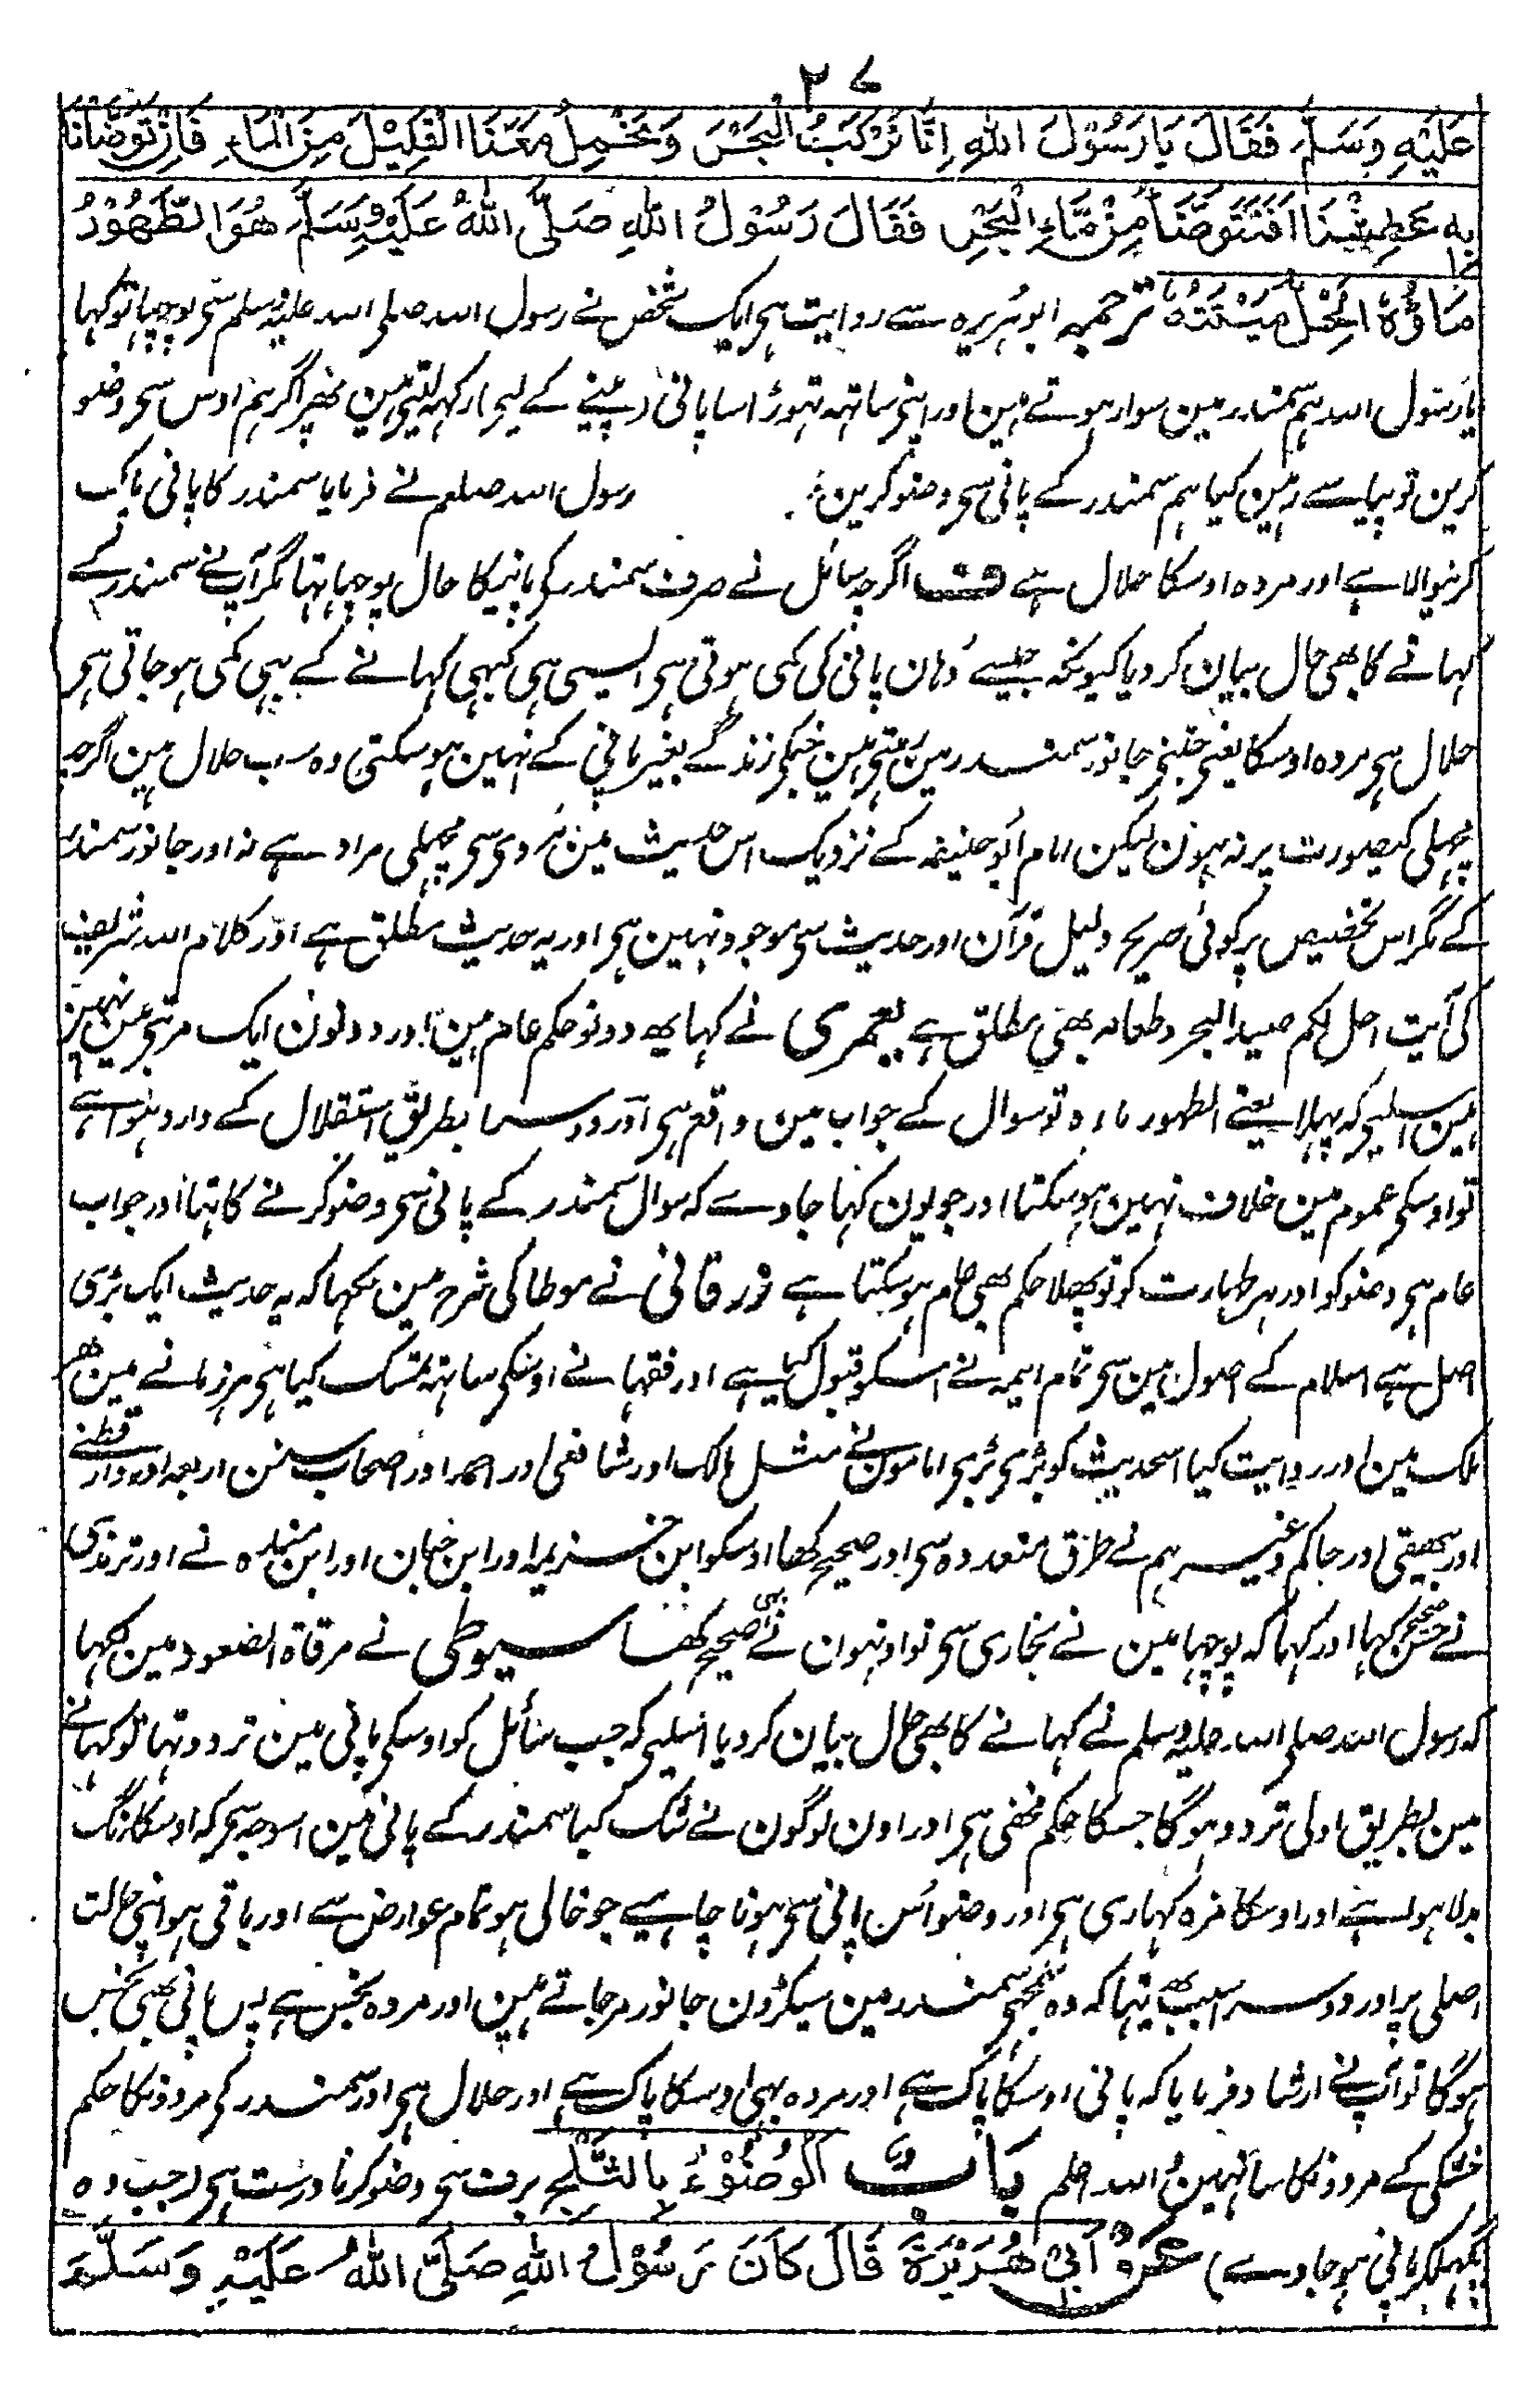 ۲۷
عَلَيْهِ وَسَلَّمَ فَقَالَ يَا رَسُوْلَ اللهِ اِنَّا نَرْكَبُ الْبَحْرَ وَنَحْمِلُ مَعَنَا الْقَلِيْلَ مِنَ الْمَاءِ فَاِنْ تَوَضَّأْنَا
بِهٖ عَطِشْنَا اَفَنَتَوَضَّأُ مِنْ مَّاءِ الْبَحْرِ فَقَالَ رَسُوْلُ اللهِ صَلَّى اللهُ عَلَيْهِ وَسَلَّمَ هُوَ الطَّهُوْرُ
مَاؤُهٗ الْحِلُّ مَيْتَتُهٗ ترجمہ ابو ہریرہ سے روایت ہی ایک شخص نے رسول اللہ صلی اللہ علیہ وسلم سی پوچہا تو کہا
یا رسول اللہ ہم سمندر مین سوار ہوتے ہین اور اپنی ساتہہ تہوڑا سا پانی (پینے کے لیی) رکہہ لیتی ہین پھر اگر ہم اوس سی وضو
کرین تو پیاسے رہین کیا ہم سمندر کے پانی سی وضو کرین رسول اللہ صلعم نے فرمایا سمندر کا پانی پاک
کرنیوالا ہے اور مردہ اوسکا حلال ہے ف اگرچہ سائل نے صرف سمندر کی پانیکا حال پوچہا تہا مگر آپ نے سمندر کے
کہانے کا بھی حال بیان کر دیا کیونکہ جیسے وہان پانی کی کمی ہوتی ہی ایسی ہی کبہی کہانے کے بہی کمی ہو جاتی ہی
حلال ہی مردہ اوسکا یعنی جتنی جانور سمندر مین رہتی ہین جنکی زندگے بغیر پانی کے نہین ہو سکتی وہ سب حلال ہین اگرچہ
مچہلی کیصورت پر نہ ہون لیکن امام ابو حنیفہ کے نزدیک اس حدیث مین مردی سی مچہلی مراد ہے نہ اور جانور سمندر
کے مگر اس تخصیص پر کوئی صریح دلیل قرآن اور حدیث سی موجود نہین ہی اور یہ حدیث مطلق ہے اور کلام اللہ شریف
کی آیت احل لکم صید البحر وطعامہ بھی مطلق ہے یعمری نے کہا یھ دونو حکم عام ہین اور دونون ایک مرتبی مین نہین
ہین اسلیی کہ پہلا یعنے الطہور ماءہ تو سوال کے جواب مین واقع ہی اور دوسرا بطریق استقلال کے وارد ہوا ہے
تو اوسکی عموم مین خلاف نہین ہو سکتا اور جو یون کہا جاوے کہ سوال سمندر کے پانی سی وضو کرنے کا تہا اور جواب
عام ہی وضو کو اور ہر طہارت کو تو پچھلا حکم بھی عام ہو سکتا ہے زرقانی نے موطا کی شرح مین لکہا کہ یہ حدیث ایک بڑی
اصل ہے اسلام کے اصول مین سی تمام ایمہ نے اسکو قبول کیا ہے اور فقہا نے اوسکی ساتہ تمسک کیا ہی ہر زمانے مین ھر
ملک مین اور روایت کیا اسحدیث کو بڑی بڑی امامون نے مثل مالک اور شافعی اور احمد اور اصحاب سنن اربعہ اور دارقطنے
اور بیھقی اور حاکم وغیرہم نے طرق متعددہ سی اور صحیح کھا اوسکو ابن خزیمہ اور ابن حبان اور ابن مندہ نے اور ترمذی
نے حسن صحیح کہا اور کہا کہ پوچہا مین نے بخاری سی تو اونہون نے بھی صحیح کھا سیوطی نے مرقاة الصعود مین لکہا
کہ رسول اللہ صلی اللہ علیہ وسلم نے کہانے کا بھی حال بیان کر دیا اسلیی کہ جب سائل کو اوسکی پانی مین تردد تہا تو کہانے
مین بطریق اولی تردد ہوگا جسکا حکم مخفی ہی اور اون لوگون نے شک کیا سمندر کے پانی مین اسوجہ سی کہ اوسکا رنگ
بدلا ہوا ہے اور اوسکا مزہ کہاری ہی اور وضو اس پانی سی ہونا چاہیے جو خالی ہو تمام عوارض سے اور باقی ہو اپنی حالت
اصلی پر اور دوسرا سبب یھ تہا کہ وہ سمجہی سمندر مین سیکڑون جانور مر جاتے ہین اور مردہ نجس ہے پس پانی بھی نجس
ہوگا تو آپ نے ارشاد فرمایا کہ پانی اوسکا پاک ہے اور مردہ بہی اوسکا پاک ہے اور حلال ہی اور سمندر کی مردونکا حکم
خشکی کے مردونکا سا نہین واللہ اعلم بَابُ الْوُضُوْءِ بِالثَّلْجِ برف سی وضو کرنا درست ہی (جب وہ
پگہلکر پانی ہو جاوے) عَنْ اَبِيْ هُرَيْرَةَ قَالَ كَانَ رَسُوْلُ اللهِ صَلَّى اللهُ عَلَيْهِ وَسَلَّمَ